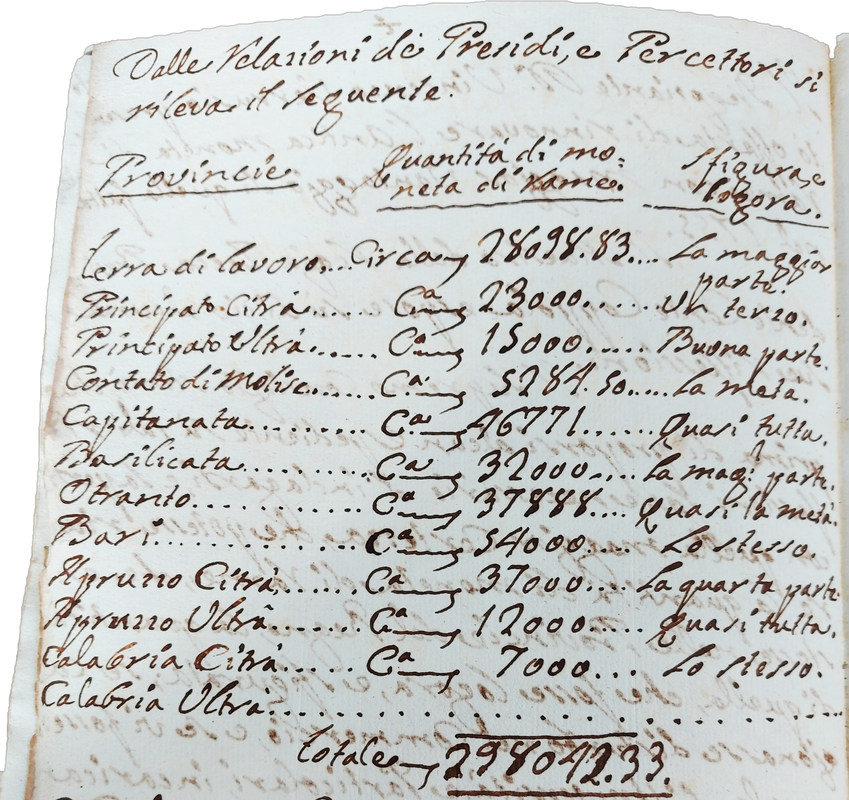 Dalle Relazioni de Presidi, e Percettori si
rileva il seguente.
Provincie Quantità di mo= sfigura, e
neta di rame. logora.
Terra di lavoro,... Circa 28098.83.... La maggior
parte.
Principato Citrà....... Ca 23000...... Un terzo.
Principato Ultrà....... Ca 15000...... Buona parte.
Contato di Molise....... Ca 5284.50..... La metà.
Capitanata.......... Ca 46771...... Quasi tutta.
Basilicata.......... Ca 32000..... La mag: parte.
Otranto............ Ca 37888.... Quasi la metà.
Bari.............. Ca 54000..... Lo stesso.
Apruzzo Citrà,....... Ca 37000.... La quarta parte
Apruzzo Ultrà........ Ca 12000...... Quasi tutta.
Calabria Citrà...... Ca 7000.... Lo stesso.
Calabria Ultrà....................
Totale 298042.33.